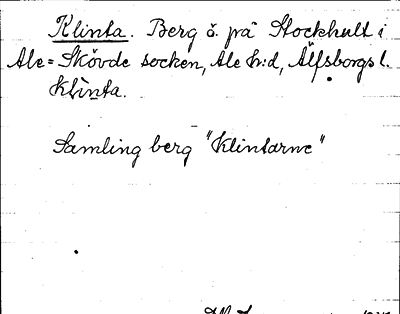 Klinta. Berg ö. på Stockhult i
Ale=Skövde socken, Ale h:d, Älfsborgs l.
Klinta.
Samling berg "Klintarne"